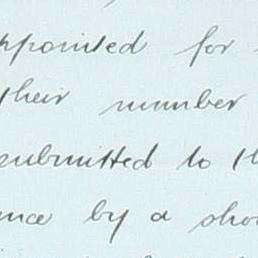 ppointed for
their number
submitted to th
ance by a sho